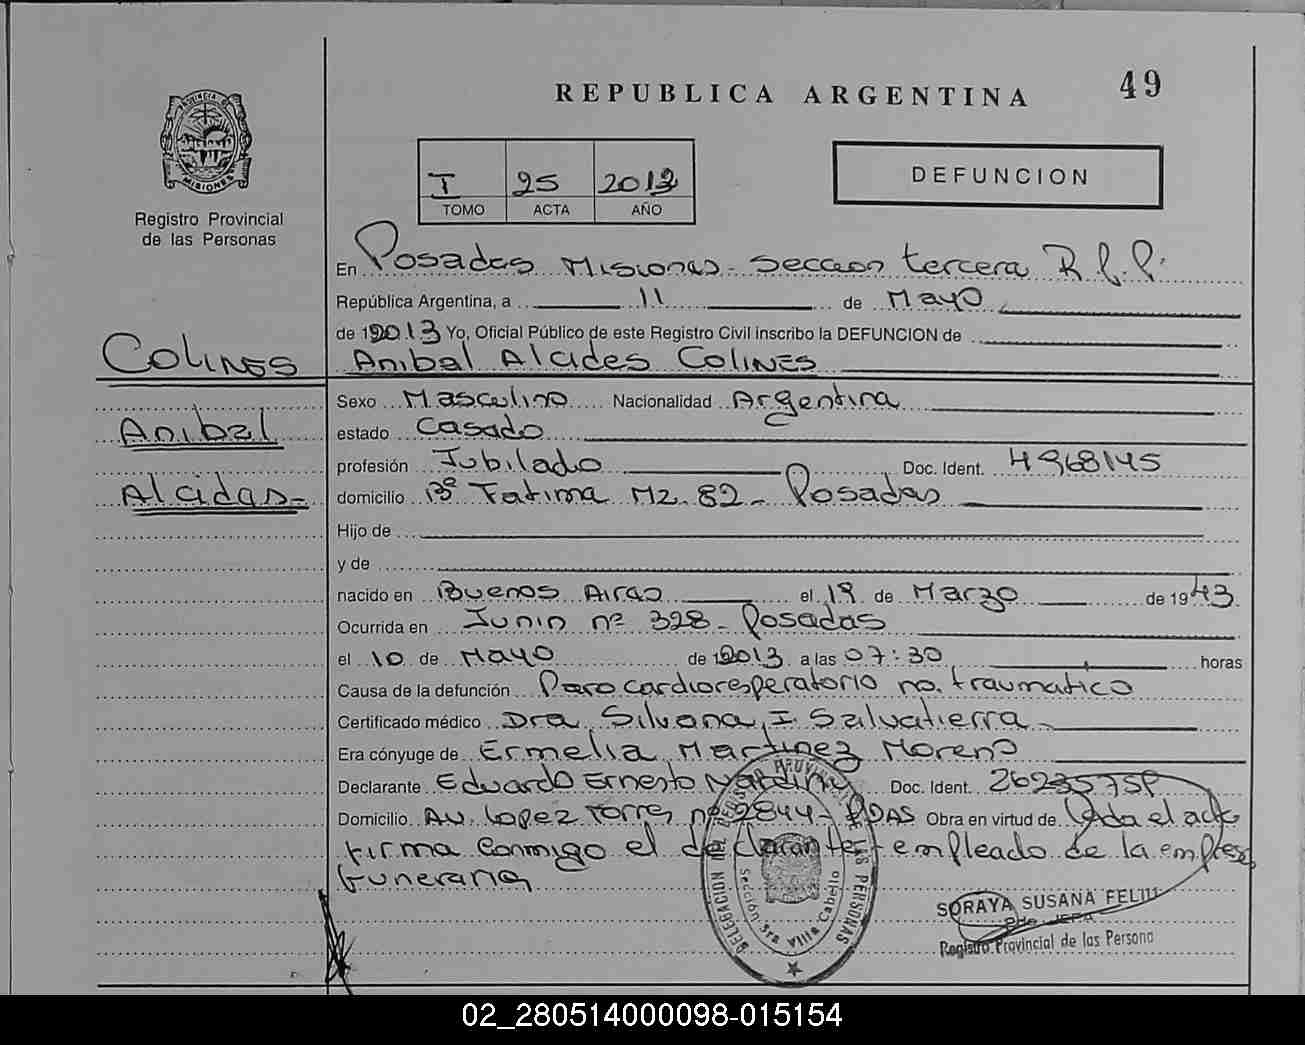 49
REPUBLICA ARGENTINA
PROVINCIA DE
MISIONES
Registro Provincial
de las Personas
I 25 2013
TOMO ACTA AÑO
DEFUNCION
En Posadas Misiones - Seccion tercera R.P.P.
República Argentina, a 11 de Mayo
de 2013 Yo, Oficial Público de este Registro Civil inscribo la DEFUNCION de
Anibal Alcides COLINES
COLINES
Anibal
Alcides -
Sexo Masculino Nacionalidad Argentina
estado Casado
profesión Jubilado Doc. Ident. 4968145
domicilio Bº Fatima Mz. 82 - Posadas
Hijo de
y de
nacido en Buenos Aires el 19 de Marzo de 1943
Ocurrida en Junin nº 328 - Posadas
el 10 de Mayo de 2013 a las 07:30 horas
Causa de la defunción Paro cardiorespiratorio no traumatico
Certificado médico Dra Silvana I. Salvatierra
Era cónyuge de Ermelia Martinez Moreno
Declarante Eduardo Ernesto Doc. Ident.
Domicilio Av. Lopez Torres nº 2844 - PDAS Obra en virtud de Leda el acta
firma conmigo el declarante - empleado de la empresa
funeraria
DELEGACION DEL REGISTRO PROVINCIAL DE LAS PERSONAS
Sección 3ra Villa Cabello
SORAYA SUSANA FELIU
JEFA
Registro Provincial de las Persona
02_280514000098-015154